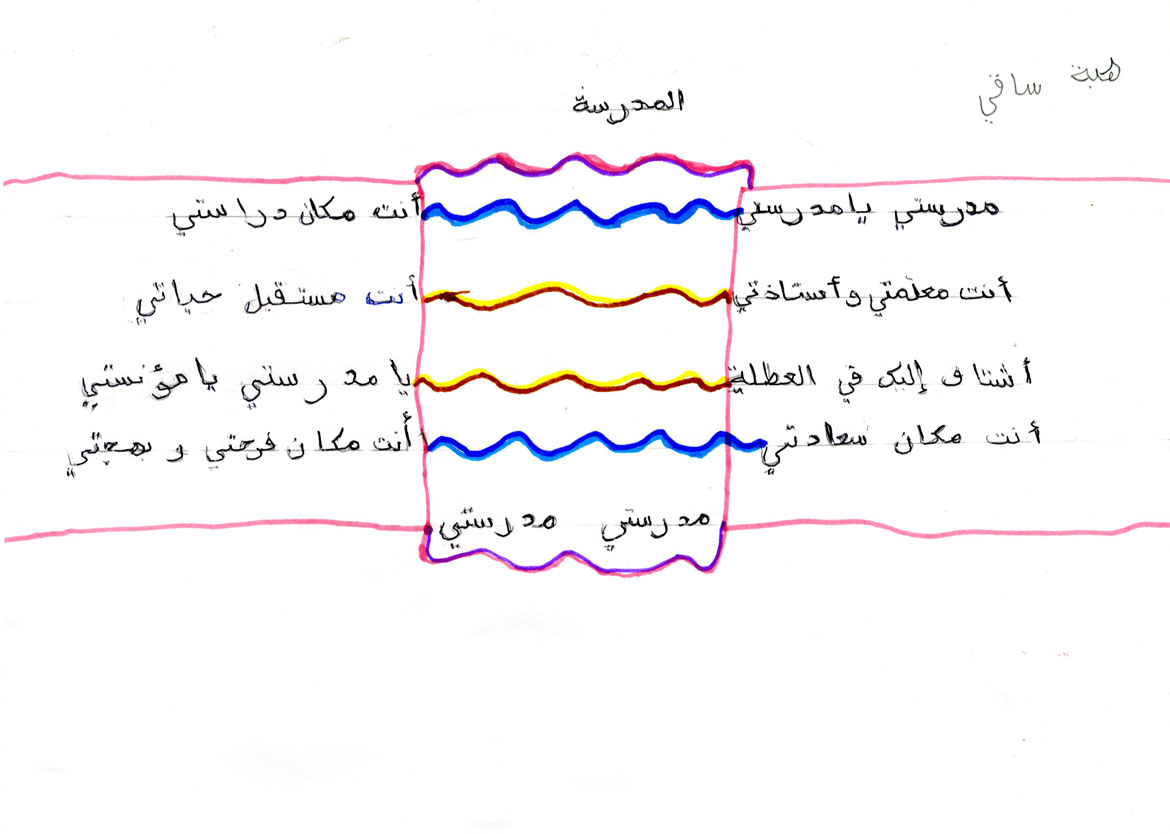 هبة ساقي
المدرسة
مدرستي يا مدرستي أنت مكان دراستي
أنت معلمتي وأستاذتي أنت مستقبل حياتي
أشتاق إليك في العطلة يا مدرستي يا مؤنستي
أنت مكان سعادتي أنت مكان فرحتي و بهجتي
مدرستي مدرستي